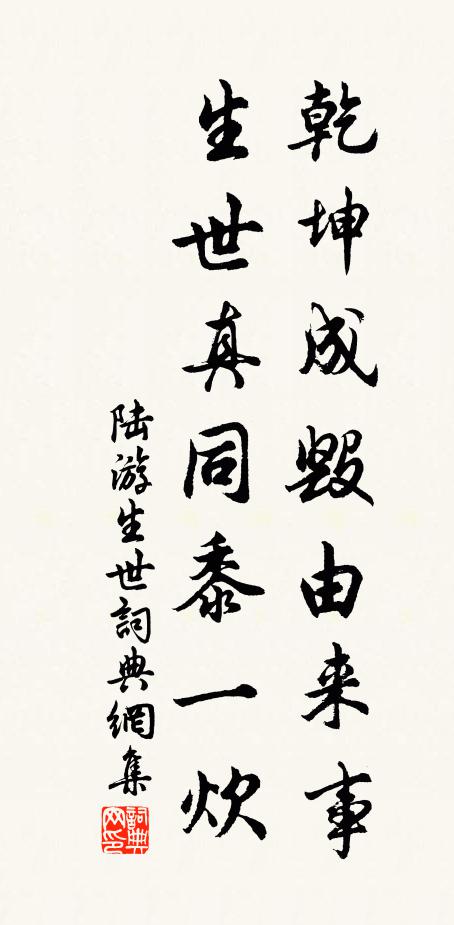 乾坤成毁由来事
生世真同黍一炊
陆游生世詞典網集
詞典网印